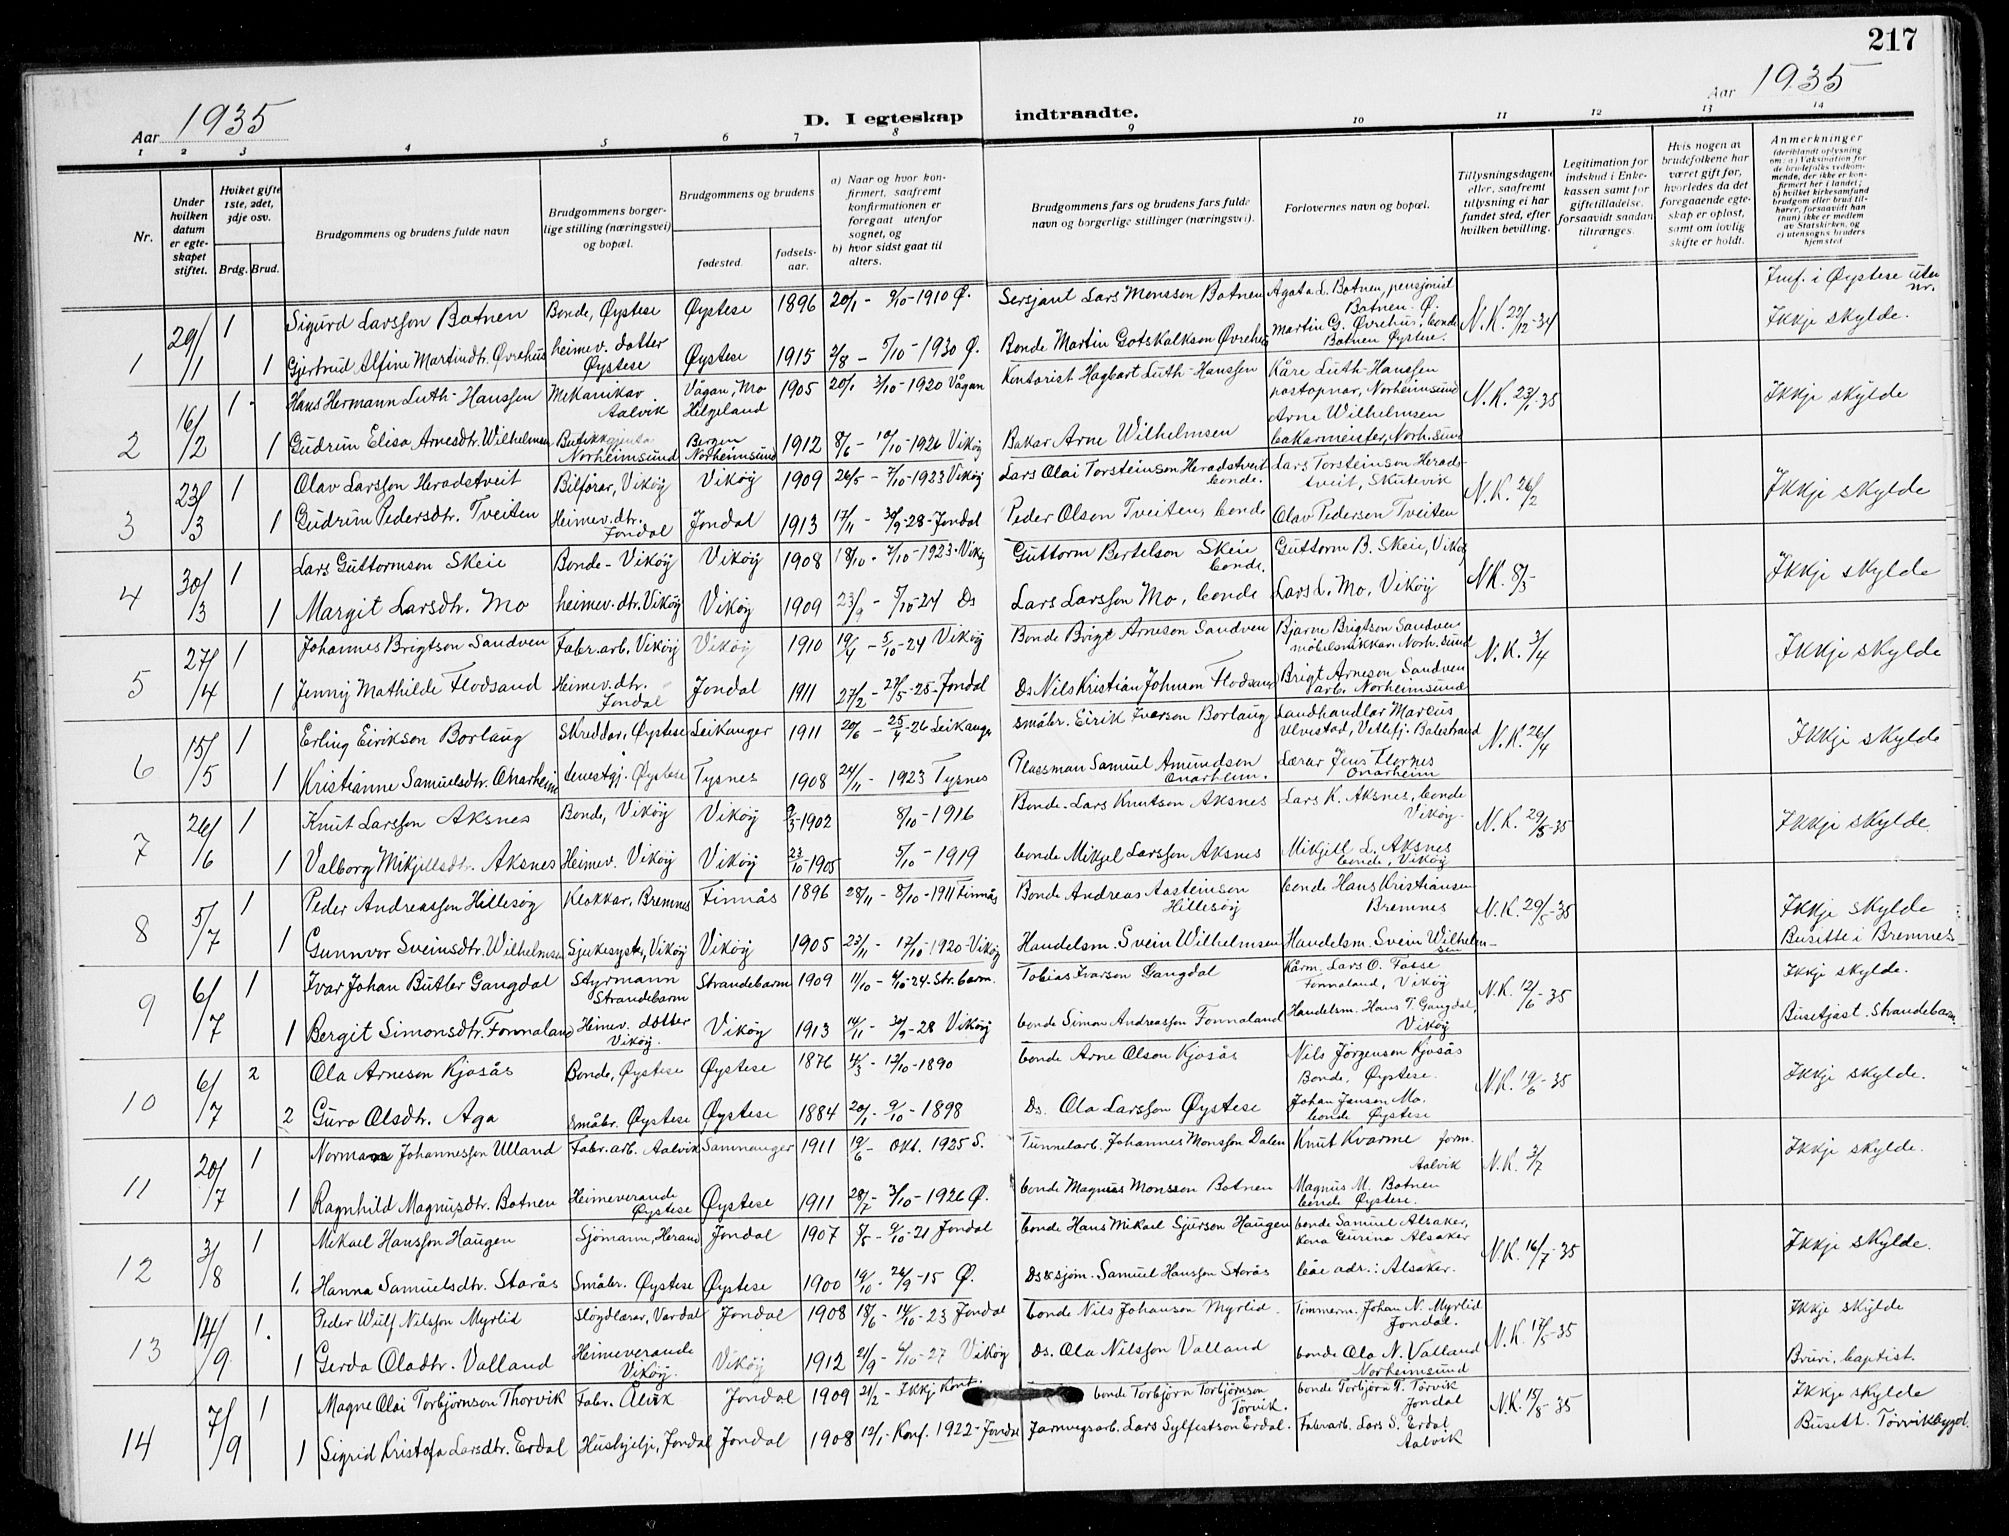 217
Aar 1935
D. I egteskap indtraadte.
Aar 1935
1 2 3 4 5 6 7 8 9 10 11 12 13 14
Nr.
Under hvilken datum er egteskapet stiftet.
Hviket gifte 1ste, 2det, 3dje osv.
Brdg. Brud.
Brudgommens og brudens fulde navn
Brudgommens borgerlige stilling (næringsvei) og bopæl.
Brudgommens og brudens
fødested.
fødselsaar.
a) Naar og hvor konfirmert, saafremt konfirmationen er foregaat utenfor sognet, og
b) hvor sidst gaat til alters.
Brudgommens fars og brudens fars fulde navn og borgerlige stillinger (næringsvei).
Forlovernes navn og bopæl.
Tillysningsdagene eller, saafremt tillysning ei har fundet sted, efter hvilken bevilling.
Legitimation for indskud i Enkekassen samt for giftetilladelse, forsaavidt saadan tiltrænges.
Hvis nogen av brudefolkene har været gift før, hvorledes da det foregaaende egteskap er opløst, samt om lovlig skifte er holdt.
Anmerkninger (deriblandt oplysning om: a) Vaksination for de brudefolks vedkommende, der ikke er konfirmert her i landet; b) hvilket kirkesamfund brudgom eller brud tilhører, forsaavidt han (hun) ikke er medlem av Statskirken, og c) utensogns bruders hjemsted
1 29/1 1 Sigurd Larsson Botnen Bonde, Øystese Øystese 1896 20/1 - 9/10-1910 Ø. Sersjant Lars Monsson Botnen Agata L. Botnen, pensjonist Botnen Ø. N.K. 27/12-34 Innf. i Øystese uten nr. Ikkje skylde.
1 Gjertrud Alfine Martindtr. Øvrehus heimev. dotter Øystese Øystese 1915 2/8 - 5/10-1930 Ø. Bonde Martin Gotskalkson Øvrehus Martin G. Øvrehus, bonde Botnen Øystese.
2 16/2 1 Hans Hermann Luth-Hanssen Mekanikar Aalvik Vågan, Mo Helgeland 1905 20/1 3/10-1920 Vågan Kontorist Hagbart Luth-Hanssen Kåre Luth-Hanssen postopnar, Norheimsund N.K. 23/1-35 Ikkje skylde
1 Gudrun Elisa Arnesdtr. Wilhelmsen Butikkgjenta Norheimsund Bergen Norheimsund 1912 8/6 - 10/10-1926 Vikøy Bakar Arne Wilhelmsen Arne Wilhelmsen bakarmeister, Norh.sund
3 23/3 1 Olav Larsson Heradstveit Bilførar, Vikøy Vikøy 1909 26/5 - 7/10-1923 Vikøy Lars Olai Torsteinson Heradstveit bonde. Lars Torsteinson Heradstveit, Skutevik N.K. 26/2 Ikkje skylde
1 Gudrun Pedersdtr. Tveiten Heimev. dtr. Jondal Jondal 1913 17/11 - 30/9-28-Jondal Peder Olson Tveiten, bonde Olav Pedersen Tveiten
4 30/3 1 Lars Guttormson Skeie Bonde - Vikøy Vikøy 1908 18/10 - 7/10-1923-Vikøy Guttorm Bertelson Skeie bonde. Guttorm B. Skeie, Vikøy N.K. 8/3- Ikkje skylde
1 Margit Larsdtr. Mo heimev. dtr. Vikøy Vikøy 1909 23/9 - 5/10-24 Ds Lars Larsson Mo, bonde Lars L. Mo, Vikøy
5 27/4 1 Johannes Brigtson Sandven Fabr.arb. Vikøy Vikøy 1910 19/4 - 5/10-24 Vikøy Bonde Brigt Arneson Sandven Bjarne Brigtson Sandven møbelsnikkar. Norh.sund N.K. 3/4 Ikkje skylde
1 Jenny Mathilde Flodsand Heimev. dtr. Jondal Jondal 1911 27/2 - 27/5-25-Jondal Ds Nils Kristian Johnson Flodsand Brigt Arneson Sandven arb. Norheimsund
6 15/5 1 Erling Eirikson Borlaug Skreddar, Øystese Leikanger 1911 20/6 - 25/4-26 Leikanger småbr. Eirik Iverson Borlaug Landhandlar Marcus Ulvestad, Vetlefj. Balestrand N.K. 26/4 Ikkje skylde
1 Kristianne Samuelsdtr. Onarheim tenestgj. Øystese Tysnes 1908 24/11 - 1923 Tysnes Plassman Samuel Amundson Onarheim. Lærar Jens Flornes Onarheim
7 26/6 1 Knut Larsson Aksnes Bonde, Vikøy Vikøy 9/3-1902 8/10-1916 Bonde. Lars Knutson Aksnes Lars K. Aksnes, bonde Vikøy. N.K. 29/5-35 Ikkje skylde
1 Valborg Mikjelsdtr. Aksnes Heimev. Vikøy Vikøy 23/10-1905 5/10-1919 bonde Mikjel Larsson Aksnes Mikjell L. Aksnes bonde, Vikøy
8 5/7 1 Peder Andreasson Hillesøy Klokkar, Bremnes Finnås 1896 28/11 - 8/10-1911 Finnås Bonde Andreas Aasteinson Hillesøy bonde Hans Kristiansen Bremnes N.K. 29/5-35 Ikkje skylde
1 Gunnvor Sveinsdtr. Wilhelmsen Sjukesyst., Vikøy Vikøy 1905 23/11 - 17/10-1920-Vikøy Handelsm. Svein Wilhelmsen Handelsm. Svein Wilhelmsen Busitte i Bremnes
9 6/7 1 Ivar Johan Butler Gangdal Styrmann Strandebarm Strandebarm 1909 11/10 - 4/10-24-Str.barm. Tobias Ivarson Gangdal Kårm. Lars O. Fosse Fonnaland, Vikøy N.K. 12/6-35 Ikkje skylde.
1 Bergit Simonsdtr. Fonnaland Heimev. dotter Vikøy. Vikøy 1913 14/11 - 30/9-28 Vikøy bonde Simon Andreasson Fonnaland Handelsm. Hans T. Gangdal, Vikøy Busetjast Strandebarm.
10 6/7 2 Ola Arneson Kjosås Bonde, Øystese Øystese 1876 4/3 - 12/10-1890 bonde Arne Olson Kjosås Nils Jörgenson Kjosås Bonde, Øystese. N.K. 19/6-35 Ikkje skylde.
2 Guro Olsdtr. Aga småbr. Øystese Øystese 1884 20/1 - 9/10-1898 Ds. Ola Larsson Øystese Johan Jansen Mo. bonde Øystese
11 20/7 1 Norman Johannesson Ulland Fabr.arb. Aalvik Samnanger 1911 19/6 - Okt. 1925 S. Tunnelarb. Johannes Monsson Dalen Knut Kvarme form. Aalvik N.K. 3/7 Ikkje skylde.
1 Ragnhild Magnusdtr. Botnen Heimeverande Øystese Øystese 1911 28/7 - 3/10-1926 Ø. bonde Magnus Monsson Botnen Magnus M. Botnen bonde Øystese.
12 3/8 1 Mikael Hansson Haugen Sjømann, Herand Jondal 1907 8/5 - 9/10-21 Jondal bonde Hans Mikael Sjurson Haugen bonde Samuel Alsaker, kona Gurina Alsaker N.K. 16/7-35 Ikkje skylde.
1. Hanna Samuelsdtr. Starås Småbr. Øystese Øystese 1900 19/10 - 26/9-15 Ø. Ds & sjøm. Samuel Hansson Starås båe adr.: Alsaker.
13 14/9 1. Peder Wulf Nilsson Myrlid Sløydlærar, Vardal Jondal 1908 18/6 - 14/10-23 Jondal bonde Nils Johanson Myrlid. Tømmerm. Johan N. Myrlid Jondal. N.K. 17/5-35 Ikkje skylde
1 Gerda Oladtr. Valland Heimeverande Vikøy. Vikøy 1912 21/9 - 4/10-27 Vikøy Ds. Ola Nilsson Valland bonde Ola N. Valland Norheimsund Bruri, baptist.
14 7/9 1 Magne Olai Torbjørnson Thorvik Fabr. Ålvik Jondal 1909 21/2 - Ikkj. Konf. bonde Torbjørn Torbjørnson Torvik. bonde Torbjørn T. Torvik Jondal N.K. 15/8-35 Ikkje skylde
1 Sigrid Kristofa Larsdtr. Erdal Hushjelp, Jondal Jondal 1908 12/1 - Konf. 1922-Jondal Jarnvegsarb. Lars Sylfestson Erdal. Fabr.arb. Lars S. Erdal Aalvik Busett. Torvikbygd.